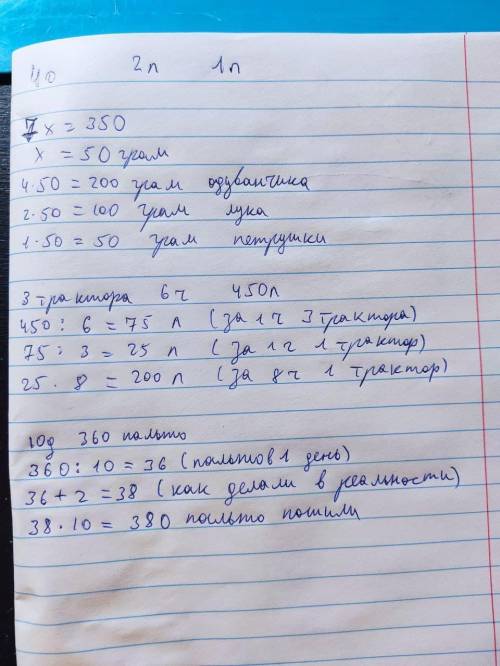 4о 2л 1п
7x = 350
x = 50 грам
4·50 = 200 грам одуванчика
2·50 = 100 грам лука
1·50 = 50 грам петрушки
3 трактора 6ч 450л
450 : 6 = 75 л (за 1 ч 3 трактора)
75 : 3 = 25 л (за 1 ч 1 трактор)
25 · 8 = 200 л (за 8ч 1 трактор)
10д 360 пальто
360 : 10 = 36 (пальто в 1 день)
36 + 2 = 38 (как делали в реальности)
38 · 10 = 380 пальто пошили